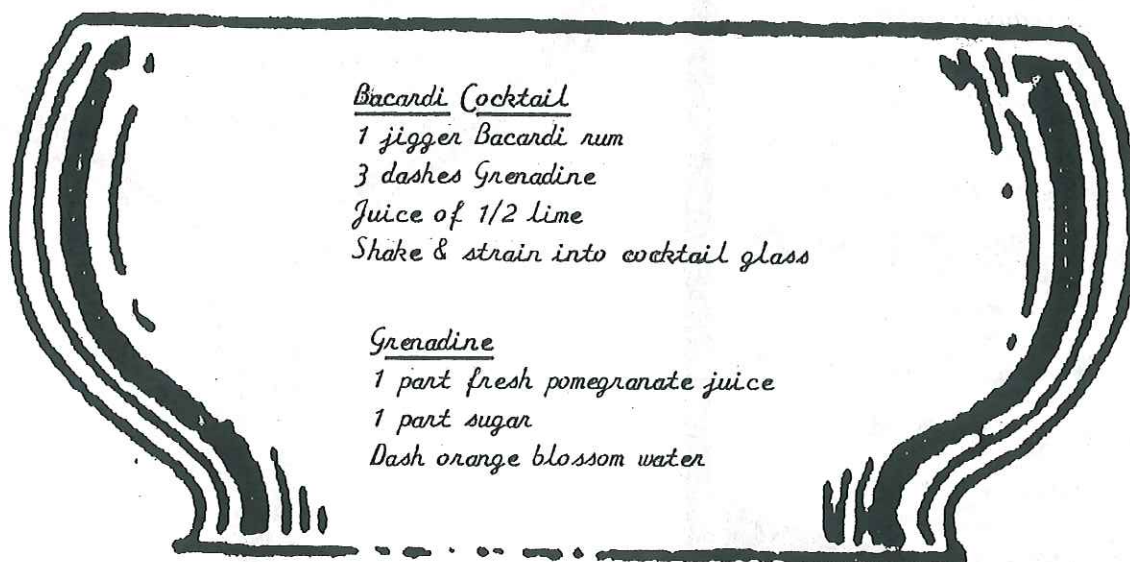 Bacardi Cocktail
1 jigger Bacardi rum
3 dashes Grenadine
Juice of 1/2 lime
Shake & strain into cocktail glass
Grenadine
1 part fresh pomegranate juice
1 part sugar
Dash orange blossom water